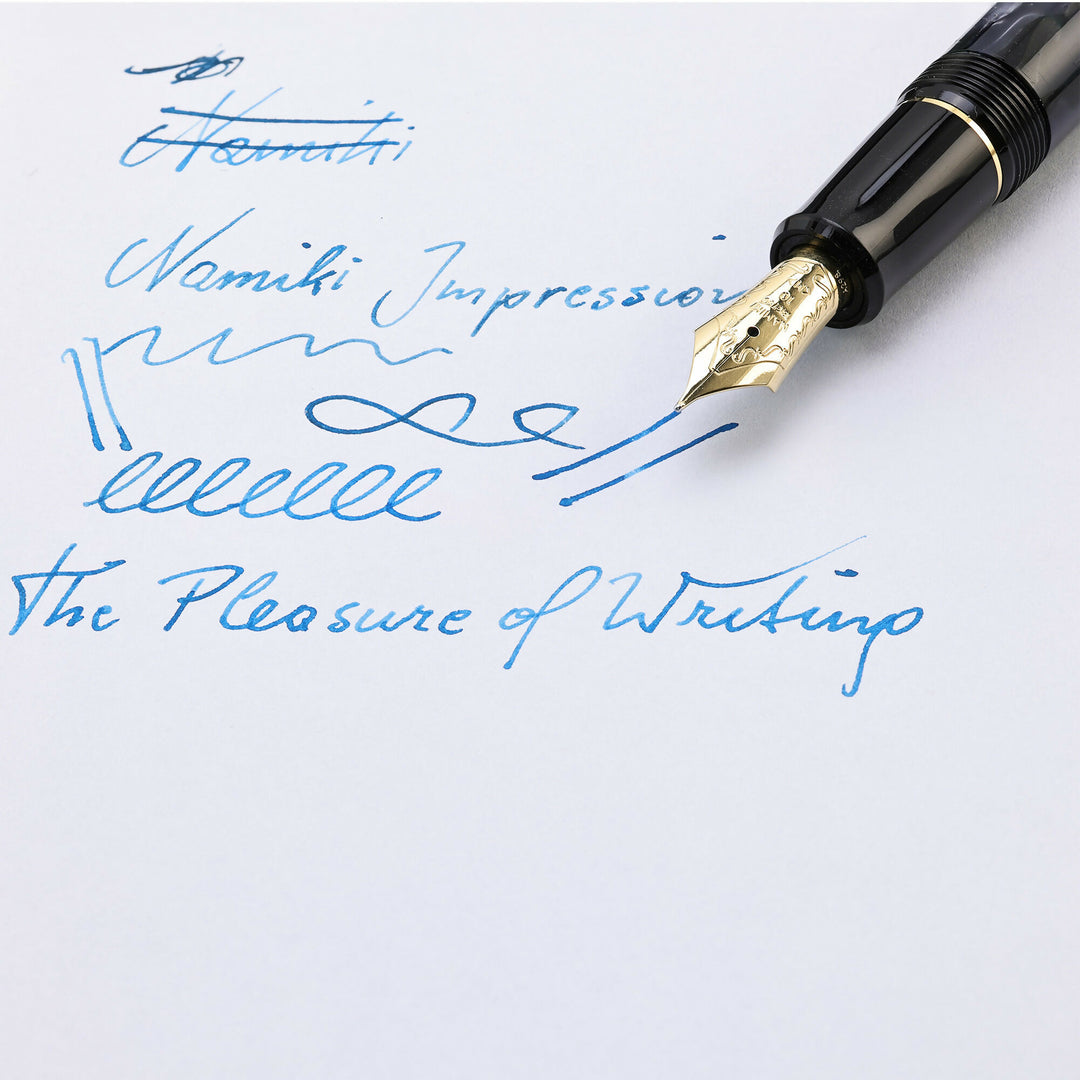 Namiki
Namiki Impression
The Pleasure of Writing